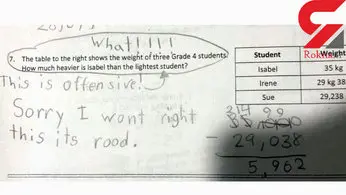 What!!!!
7. The table to the right shows the weight of three Grade 4 students.
How much heavier is Isabel than the lightest student?
This is offensive!
Sorry I wont right
this its rood.
Student Weight
Isabel 35 kg
Irene 29 kg 38
Sue 29,238
- 29,038
5,962
Rokna